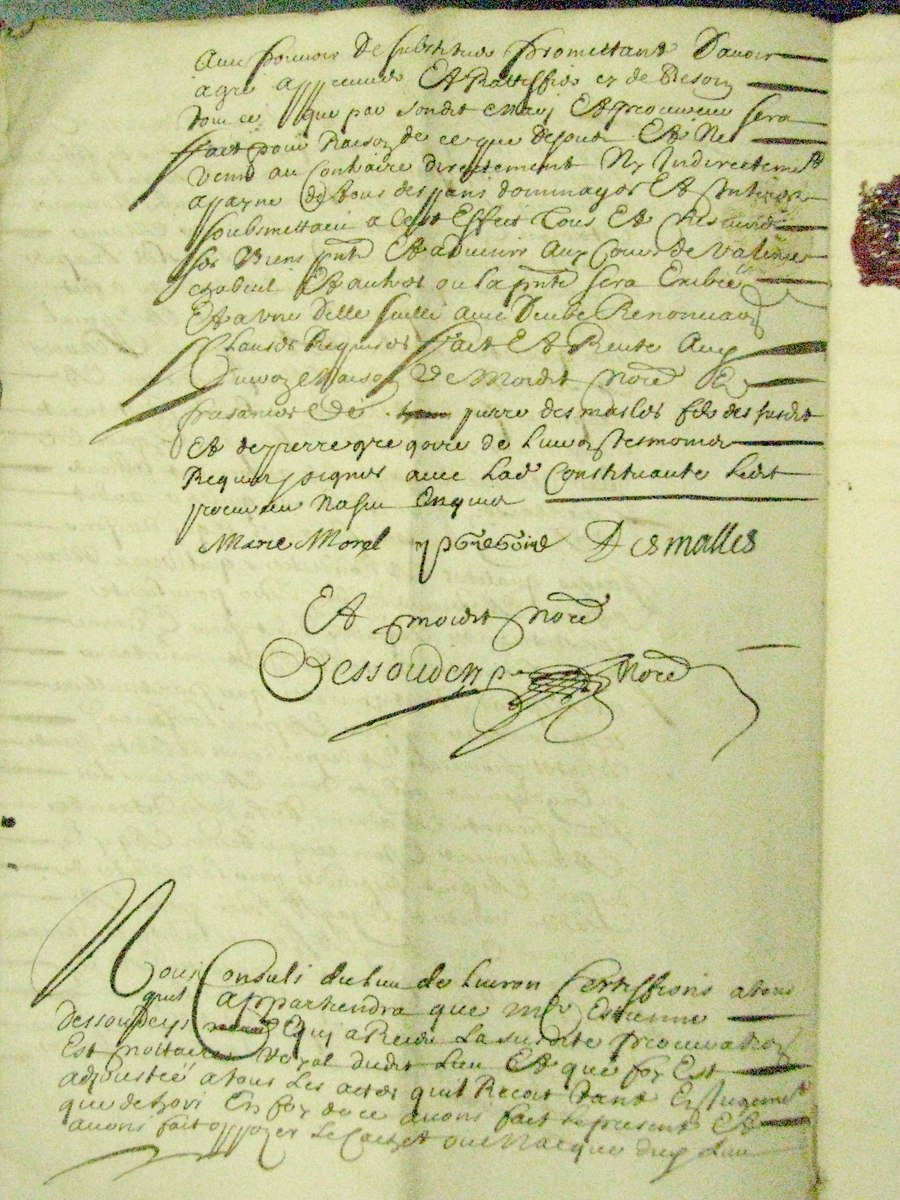 avec pouvoir de substituer promettant d'avoir
agre approuver Et Rattiffier et de Besoin
tout ce que par sondit procureur sera
fait pour Raison de ce que dessus Et Ne
venir au Contraire directement Ny Indirectemt
apayne de tous despans dommages Et Interes
soubsmettant a Cest Effect Tous Et
ses Biens pnts Et advenir aux Cours de valence
crabeuil Et autres ou la pnte sera Exibée
Et a une delle seulle avec deube Renonciaon
Clauses Requises fait Et Recité Aux
Livron Maison de Moidit Nore
presances de pierre des malles fils
Et de pierre gregoire de Livron tesmoins
Requis soignes avec lade Constituante Ledit
procureur
Marie Morel p Gregoire Desmalles
Et moidit Nore
Dessoudeys Nore
Nous Consuls du lieu de Livron Certiffions a tous
quil appartiendra que mre Estienne
dessoudeys Equi a Receu La susdite procuration
Est Nottaire Royal dudit Lieu Et que foy Est
adjoustée a tous Les actes quil Recoit tant En Jugemt
que dehors En foy de ce avons fait le present Et
avons fait appozer Le Cachet ou Marque